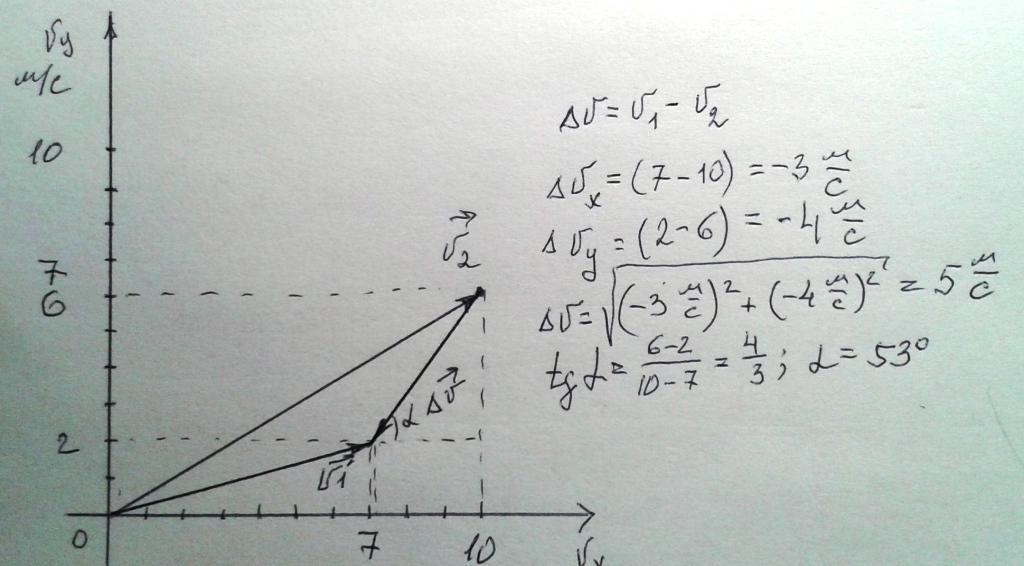 Vy
м/с
10
7
6
2
0
7
10
Vx
V⃗2
V⃗1
α ΔV⃗
ΔV = V1 - V2
ΔVx = (7-10) = -3 м/с
ΔVy = (2-6) = -4 м/с
ΔV = √((-3 м/с)² + (-4 м/с)²) = 5 м/с
tg α = (6-2)/(10-7) = 4/3; α = 53°